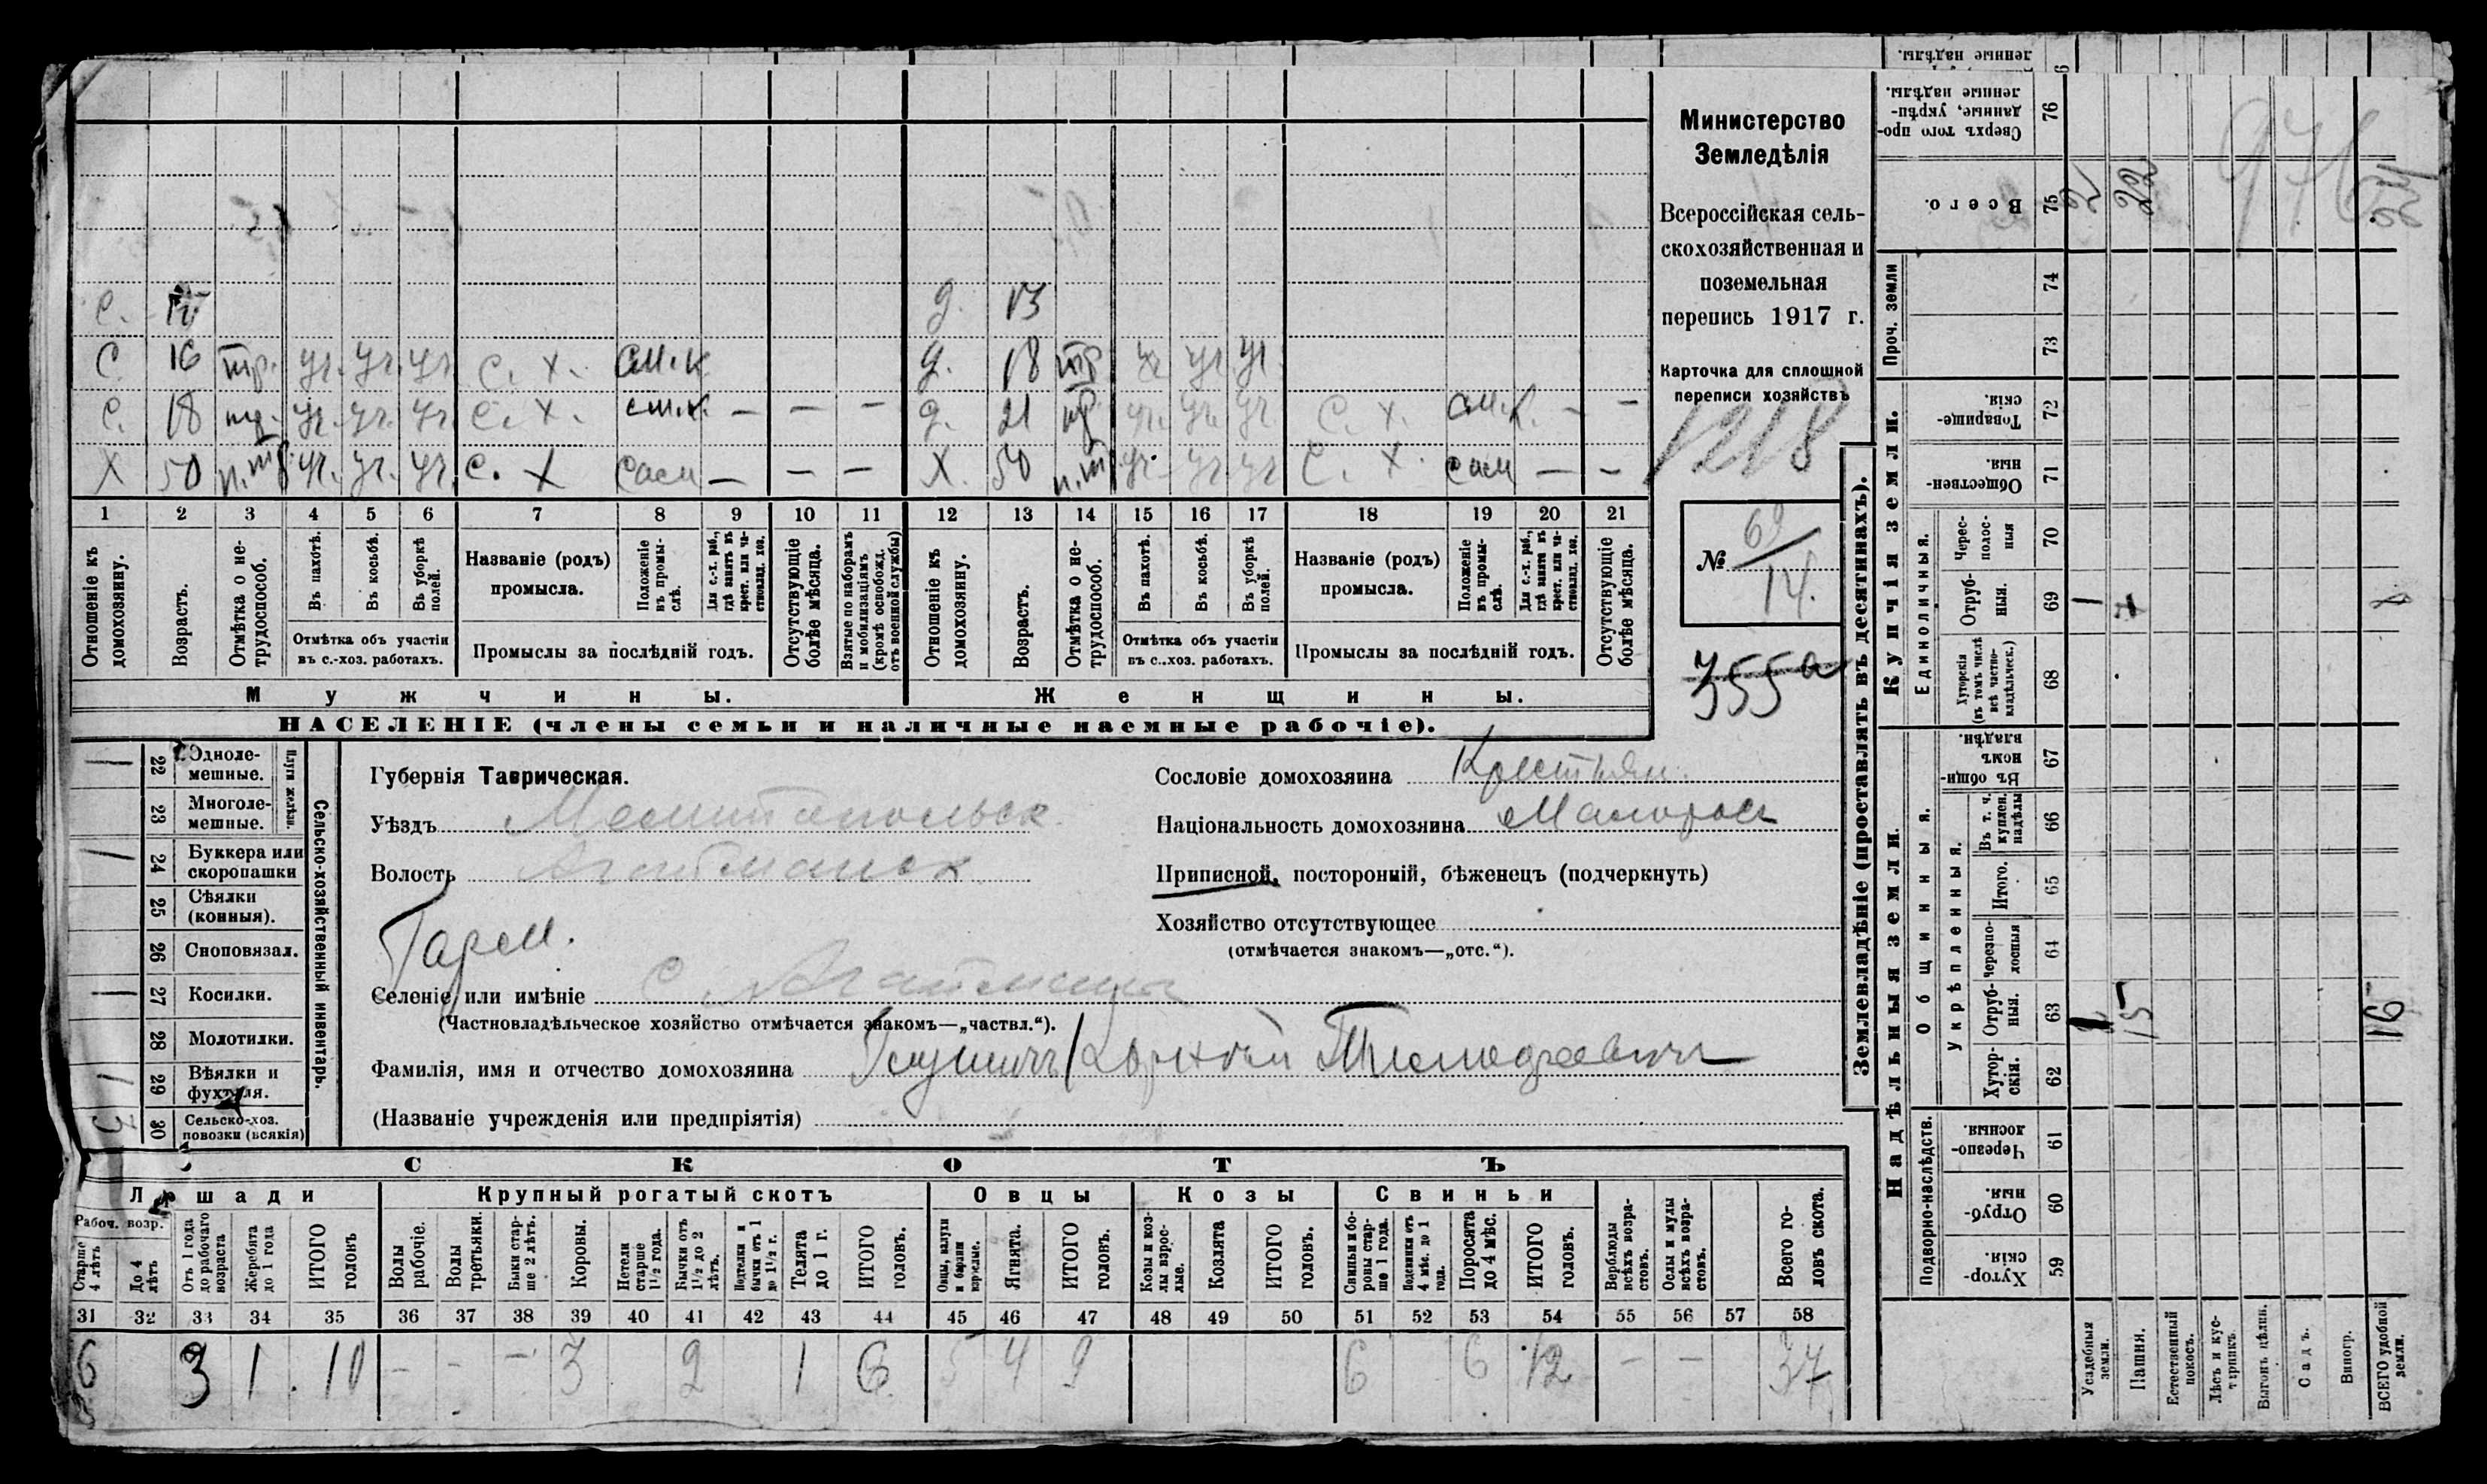 Министерство
Земледѣлія
Всероссійская сель-
скохозяйственная и
поземельная
перепись 1917 г.
Карточка для сплошной
переписи хозяйствъ
1218
№ 69/14.
355а
С. 
д. 13
С 16 тр. уч. уч. уч. С. Х. см.к
д. 18 уч уч
С. 18 уч. уч. уч. С. Х. см.к. — — —
д. 21 уч. уч. уч. С. Х. см.к. — —
Х 50 п.т уч. уч. уч. С. Х сам — — —
Х. 50 п.т уч. уч. уч С. Х. сам — —
1 2 3 4 5 6 7 8 9 10 11 12 13 14 15 16 17 18 19 20 21
Отношеніе къ домохозяину.
Возрасть.
Отмѣтка о не-трудоспособ.
Въ пахотѣ.
Въ косьбѣ.
Въ уборкѣ полей.
Отмѣтка объ участіи въ с.-хоз. работахъ.
Названіе (родъ) промысла.
Положеніе въ промы-слѣ.
Для с.-х. раб., гдѣ занятъ въ крест. или ча-стновлад. хоз.
Промыслы за послѣдній годъ.
Отсутствующіе болѣе мѣсяца.
Взятые по наборамъ и мобилизаціямъ (кромѣ освобожд. отъ военной службы)
Отношеніе къ домохозяину.
Возрасть.
Отмѣтка о не-трудоспособ.
Въ пахотѣ.
Въ косьбѣ.
Въ уборкѣ полей.
Отмѣтка объ участіи въ с..хоз. работахъ.
Названіе (родъ) промысла.
Положеніе въ промы-слѣ.
Для с.-х. раб., гдѣ занятъ въ крест. или ча-стновлад. хоз.
Промыслы за послѣдній годъ.
Отсутствующіе болѣе мѣсяца.
Мужчины.
Женщины.
НАСЕЛЕНІЕ (члены семьи и наличные наемные рабочіе).
Сельско-хозяйственный инвентарь.
Плуги желѣзн.
22 Одноле-мешные.
23 Многоле-мешные.
24 Буккера или скоропашки
25 Сѣялки (конныя).
26 Сноповязал.
27 Косилки.
28 Молотилки.
29 Вѣялки и фухтеля.
30 Сельско-хоз. повозки (всякія)
Губернія Таврическая.
Уѣздъ Мелитопольск.
Волость Агайманск
Гарм.
Селеніе или имѣніе С. Агайманы
(Частновладѣльческое хозяйство отмѣчается знакомъ—„частвл.“).
Фамилія, имя и отчество домохозяина Тимофеевич
(Названіе учрежденія или предпріятія)
Сословіе домохозяина Крестьян.
Національность домохозяина Малоросс
Приписной, посторонній, бѣженецъ (подчеркнуть)
Хозяйство отсутствующее
(отмѣчается знакомъ—„отс.“).
СКОТЪ
Лошади
Крупный рогатый скотъ
Овцы
Козы
Свиньи
Рабоч. возр.
Старше 4 лѣтъ
До 4 лѣтъ
Отъ 1 года до рабочаго возраста
Жеребята до 1 года
ИТОГО головъ
Волы рабочіе.
Волы третьяки.
Быки стар-ше 2 лѣтъ.
Коровы.
Нетели старше 1½ года.
Бычки отъ 1½ до 2 лѣтъ.
Подтелки и бычки отъ 1 до 1½ г.
Телята до 1 г.
ИТОГО головъ.
Овцы, валухи и бараны взрослые.
Ягнята.
ИТОГО головъ.
Козы и коз-лы взрос-лые.
Козлята
ИТОГО головъ.
Свиньи и бо-ровы стар-ше 1 года.
Подсвинки отъ 4 мѣс. до 1 года.
Поросята до 4 мѣс.
ИТОГО головъ.
Верблюды всѣхъ возра-стовъ.
Ослы и мулы всѣхъ возра-стовъ.
Всего го-ловъ скота.
31 32 33 34 35 36 37 38 39 40 41 42 43 44 45 46 47 48 49 50 51 52 53 54 55 56 57 58
6 3 1 10 - - - 3 2 1 6 5 4 9 6 6 12 - - 37
Землевладѣніе (проставлять въ десятинахъ).
Надѣльныя земли.
Подворно-наслѣдств.
Хутор-скія. 59
Отруб-ныя. 60
Черезпо-лосныя. 61
Общинныя.
Укрѣпленныя.
Хутор-скія. 62
Отруб-ныя. 63
Черезпо-лосныя 64
Итого. 65
Въ т. ч. куплен. надѣлы 66
Въ общи-номъ владѣн. 67
Купчія земли.
Единоличныя.
Хуторскія (въ томъ числѣ всѣ частно-владѣльческ.) 68
Отруб-ныя. 69
Черес-полос-ныя 70
Обществен-ныя. 71
Товарище-скія. 72
Проч. земли
73 74
Всего. 75
Сверхъ того про-данные, укрѣп-ленные надѣлы. 76
ленные надѣлы.
Усадебныя земли.
Пашня.
Естественный покосъ.
Лѣсъ и кус-тарникъ.
Выгонъ цѣлин.
Садъ.
Виногр.
ВСЕГО удобной земли.
15 16
1 7 8
2 22 24
976